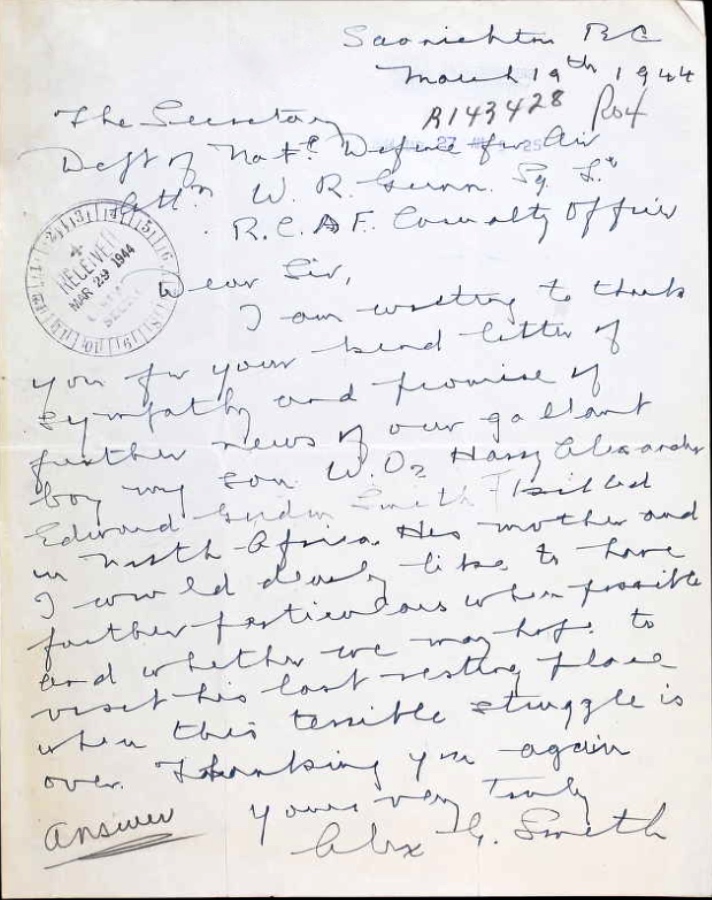 Saanichton BC
March 19th 1944
R143428
The Secretary
Dept of Natl Defence for Air
27 25
Attn W. R. Gunn. Sq. Lr
R.C.A.F. Casualty Officer
RECEIVED
MAR 29 1944
Dear Sir,
I am writing to thank
you for your kind letter of
sympathy and promise of
further news of our gallant
boy my son W.O2 Harry Alexander
Edward Smith killed
in North Africa. His mother and
I would dearly like to have
further particulars when possible
and whether we may hope to
visit his last resting place
when this terrible struggle is
over. Thanking you again
yours very truly
Alex G. Smith
Answer